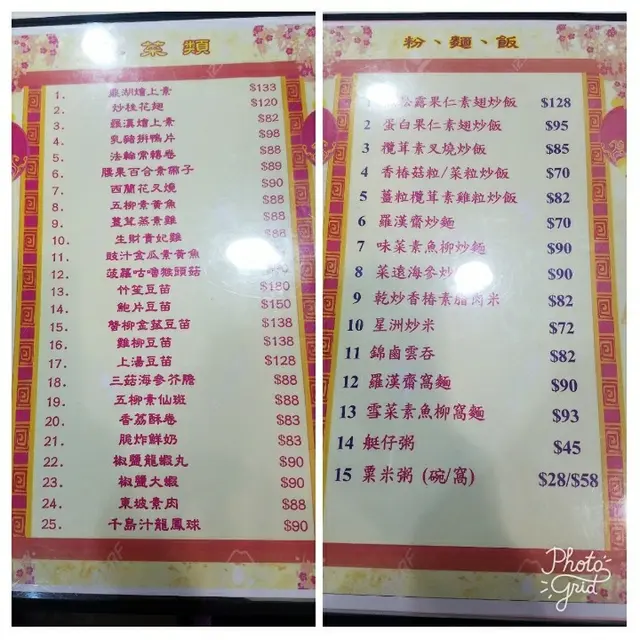 菜類
1. 鼎湖燴上素 $133
2. 炒桂花翅 $120
3. 羅漢燴上素 $82
4. 乳豬拼鴨片 $98
5. 法輪常轉卷 $88
6. 腰果百合素腰子 $89
7. 西蘭花叉燒 $90
8. 五柳素黃魚 $88
9. 薑茸蒸素雞 $88
10. 生財貴妃雞 $88
11. 豉汁盒瓜素黃魚 $88
12. 菠蘿咕嚕猴頭菇
13. 竹笙豆苗 $180
14. 鮑片豆苗 $150
15. 豆苗 $138
16. 雞柳豆苗 $138
17. 上湯豆苗 $128
18. 三菇海參芥膽 $88
19. 五柳素仙斑 $88
20. 香荔酥卷 $83
21. 脆炸鮮奶 $83
22. 椒鹽龍蝦丸 $90
23. 椒鹽大蝦 $90
24. 東坡素肉 $88
25. 千島汁龍鳳球 $90
粉、麵、飯
1 松露果仁素翅炒飯 $128
2 蛋白果仁素翅炒飯 $95
3 欖茸素叉燒炒飯 $85
4 香椿菇粒/菜粒炒飯 $70
5 薑粒欖茸素雞粒炒飯 $82
6 羅漢齋炒麵 $70
7 味菜素魚柳炒麵 $90
8 菜遠海參炒 $90
9 乾炒香椿素腊肉米 $82
10 星洲炒米 $72
11 錦鹵雲吞 $82
12 羅漢齋窩麵 $90
13 雪菜素魚柳窩麵 $93
14 艇仔粥 $45
15 粟米粥 (碗/窩) $28/$58
Photo Grid